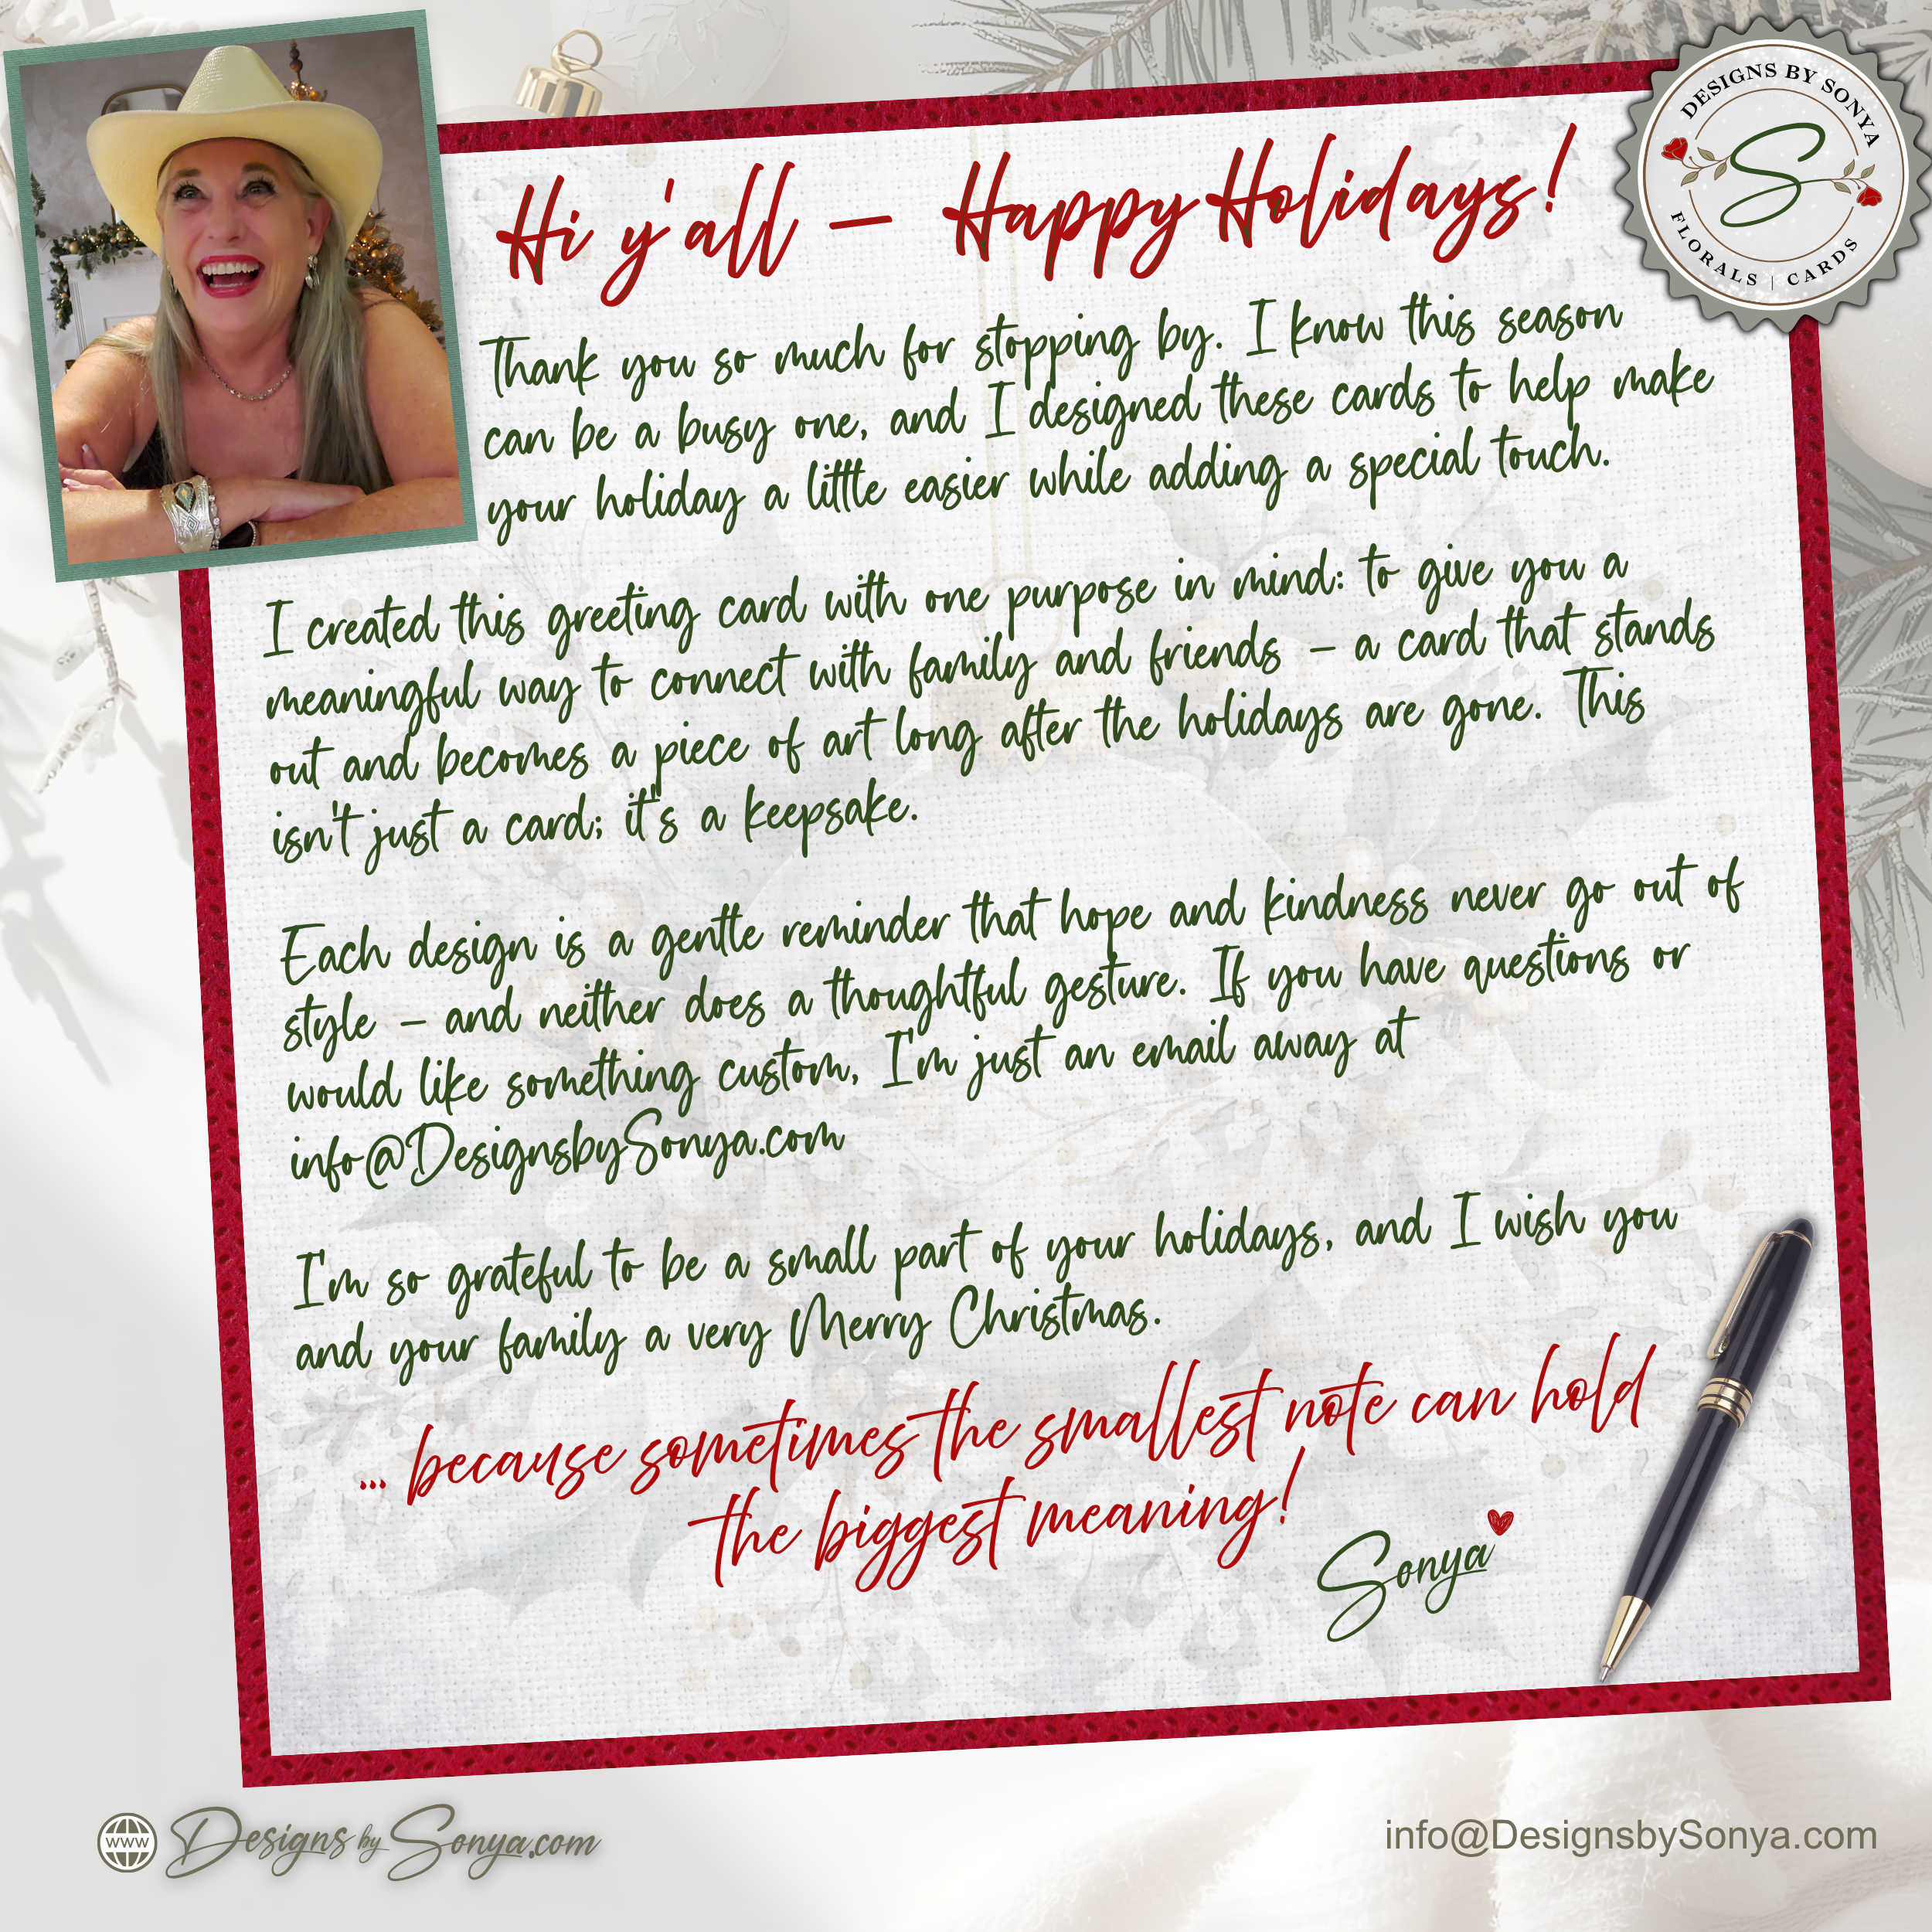 DESIGNS BY SONYA
S
FLORALS | CARDS
Hi y'all – Happy Holidays!
Thank you so much for stopping by. I know this season
can be a busy one, and I designed these cards to help make
your holiday a little easier while adding a special touch.
I created this greeting card with one purpose in mind: to give you a
meaningful way to connect with family and friends – a card that stands
out and becomes a piece of art long after the holidays are gone. This
isn't just a card; it's a keepsake.
Each design is a gentle reminder that hope and kindness never go out of
style – and neither does a thoughtful gesture. If you have questions or
would like something custom, I'm just an email away at
info@DesignsbySonya.com
I'm so grateful to be a small part of your holidays, and I wish you
and your family a very Merry Christmas.
... because sometimes the smallest note can hold
the biggest meaning!
Sonya
WWW DesignsbySonya.com
info@DesignsbySonya.com